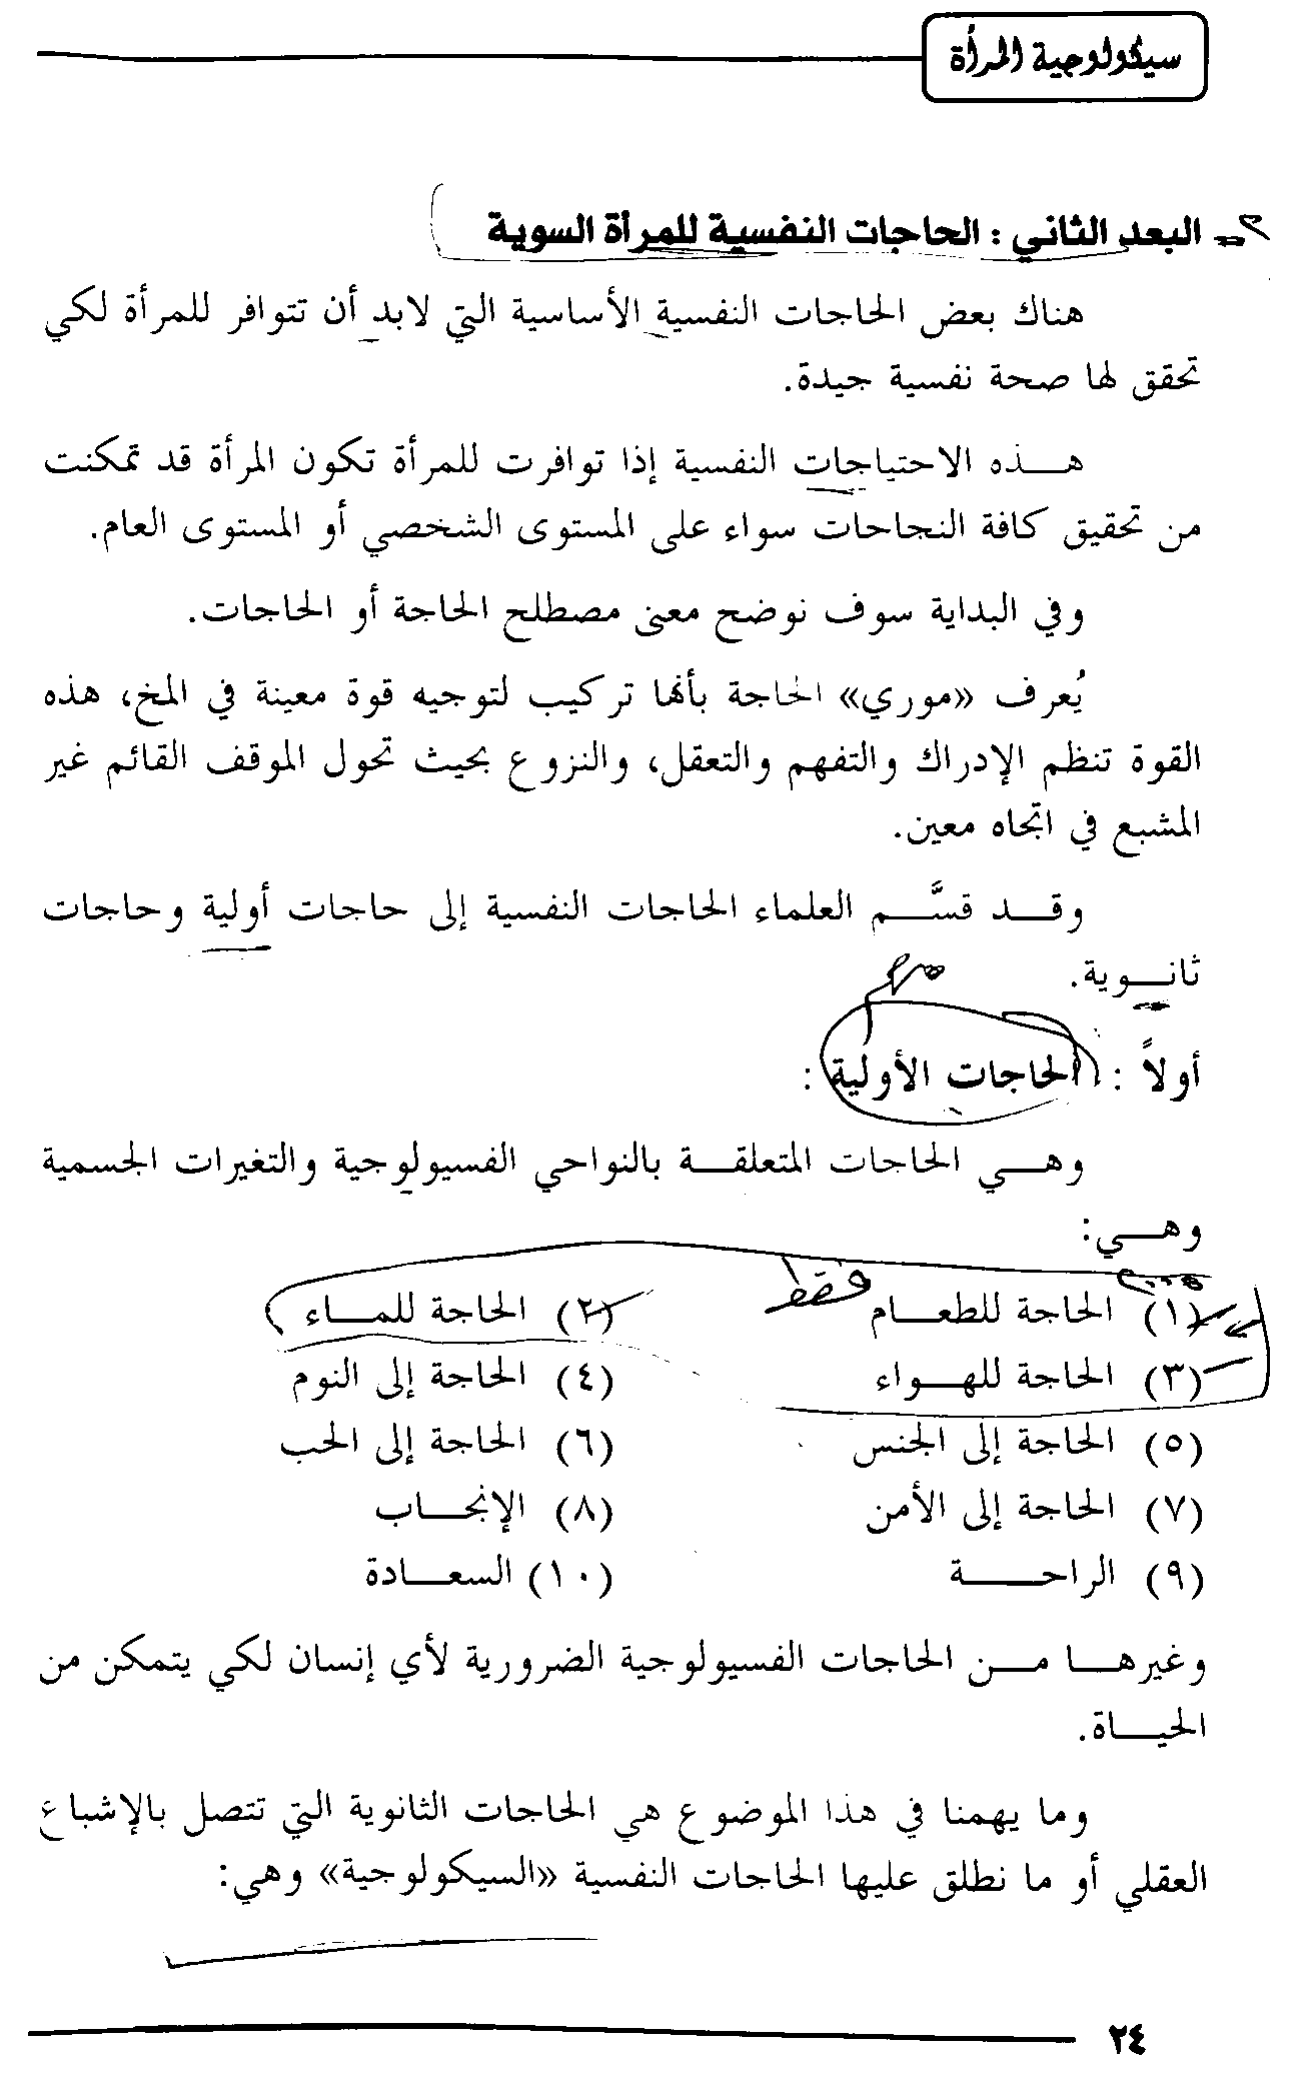 سيكولوجية المرأة
٢- البعد الثاني : الحاجات النفسية للمرأة السوية
هناك بعض الحاجات النفسية الأساسية التي لابد أن تتوافر للمرأة لكي
تحقق لها صحة نفسية جيدة.
هـــذه الاحتياجات النفسية إذا توافرت للمرأة تكون المرأة قد تمكنت
من تحقيق كافة النجاحات سواء على المستوى الشخصي أو المستوى العام.
وفي البداية سوف نوضح معنى مصطلح الحاجة أو الحاجات.
يُعرف «موري» الحاجة بأنها تركيب لتوجيه قوة معينة في المخ، هذه
القوة تنظم الإدراك والتفهم والتعقل، والنزوع بحيث تحول الموقف القائم غير
المشبع في اتجاه معين.
وقـــد قسَّـــم العلماء الحاجات النفسية إلى حاجات أولية وحاجات
ثانـــوية.
أولاً : الحاجات الأولية :
وهـــي الحاجات المتعلقـــة بالنواحي الفسيولوجية والتغيرات الجسمية
وهـــي:
فقط
(١) الحاجة للطعـــام (٢) الحاجة للمـــاء
(٣) الحاجة للهـــواء (٤) الحاجة إلى النوم
(٥) الحاجة إلى الجنس (٦) الحاجة إلى الحب
(٧) الحاجة إلى الأمن (٨) الإنجـــاب
(٩) الراحـــــة (١٠) السعـــادة
وغيرهـــا مـــن الحاجات الفسيولوجية الضرورية لأي إنسان لكي يتمكن من
الحيـــاة.
وما يهمنا في هذا الموضوع هي الحاجات الثانوية التي تتصل بالإشباع
العقلي أو ما نطلق عليها الحاجات النفسية «السيكولوجية» وهي:
٢٤